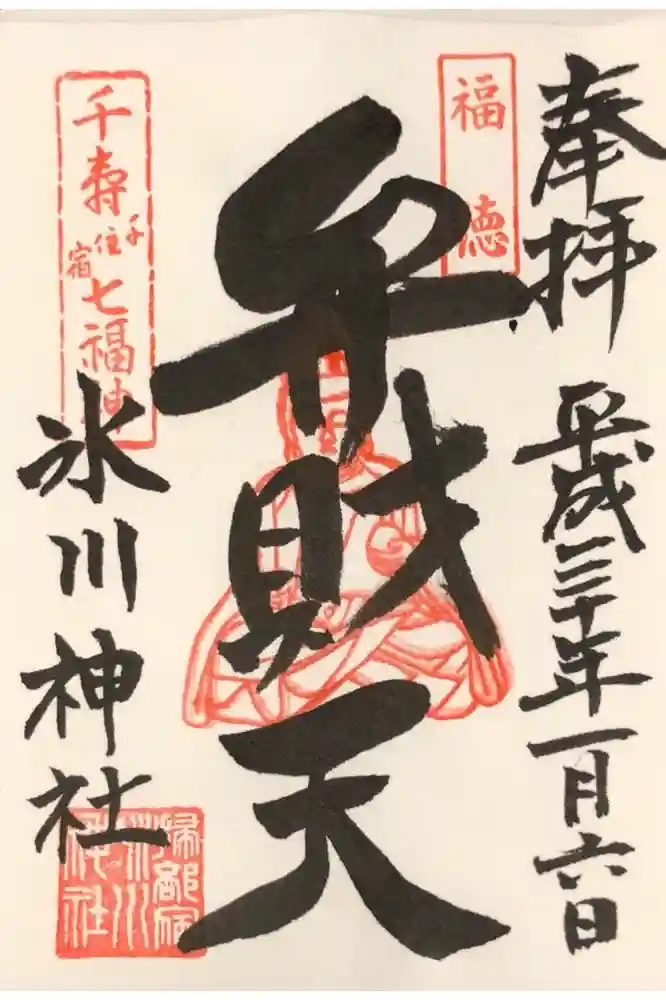 奉拝
平成三十年一月六日
福徳
弁財天
千寿七福神
千住
宿
氷川神社
掃部宿
氷川
神社